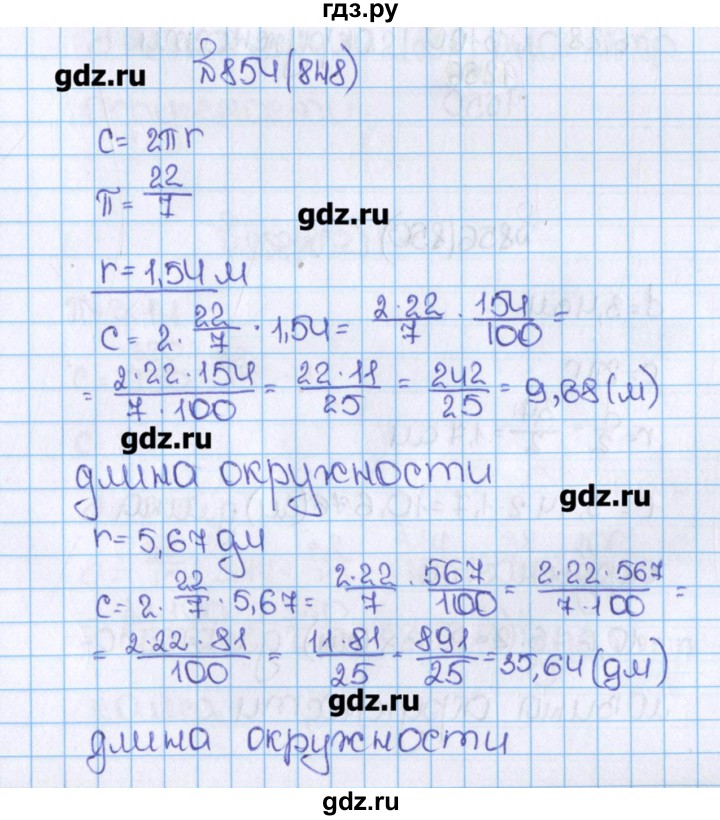 гдз.ру
№854(848)
gdz.ru
C = 2πr
π = 22/7
gdz.ru
r = 1,54 м
C = 2 · 22/7 · 1,54 = 2·22/7 · 154/100 =
= 2·22·154/7·100 = 22·11/25 = 242/25 = 9,68 (м)
gdz.ru
длина окружности
gdz.ru
r = 5,67 дм
C = 2 · 22/7 · 5,67 = 2·22/7 · 567/100 = 2·22·567/7·100 =
= 2·22·81/100 = 11·81/25 = 891/25 = 35,64 (дм)
gdz.ru
длина окружности
gdz.ru